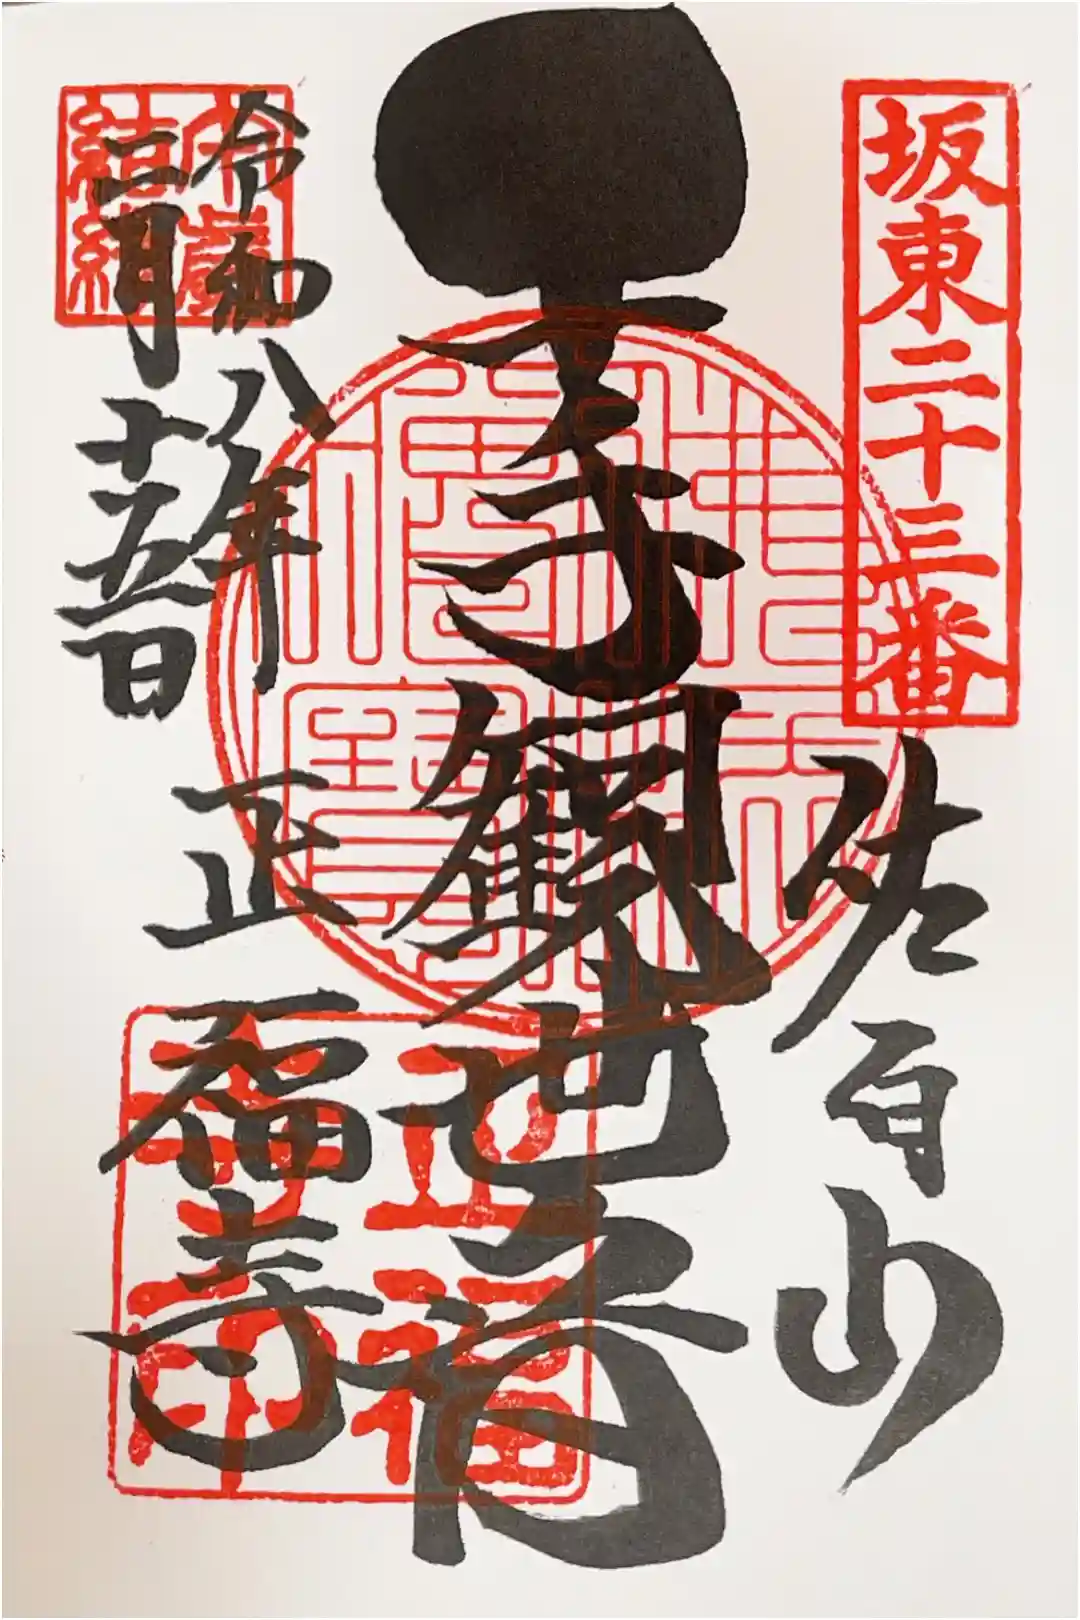 坂東二十三番
佐白山
千手觀世音
令和八年
二月十五日
正福寺
午歳結縁
正福寺印